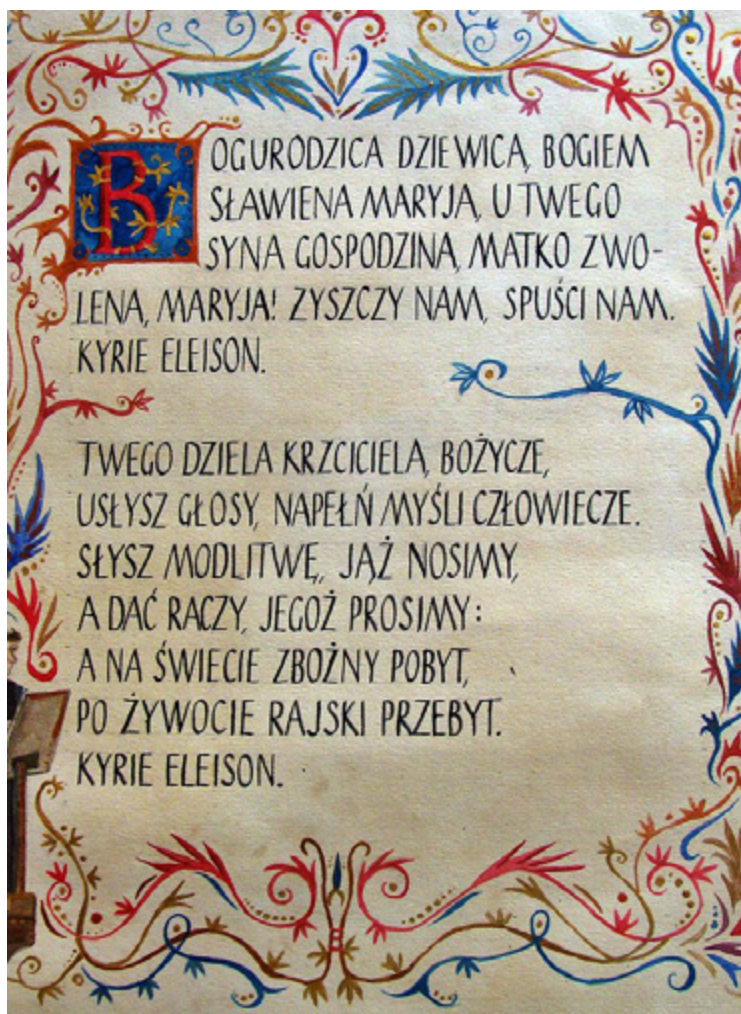 BOGURODZICA DZIEWICA, BOGIEM
SŁAWIENA MARYJA, U TWEGO
SYNA GOSPODZINA, MATKO ZWO-
LENA, MARYJA! ZYSZCZY NAM, SPUŚCI NAM.
KYRIE ELEISON.
TWEGO DZIELA KRZCICIELA, BOŻYCZE,
USŁYSZ GŁOSY, NAPEŁŃ MYŚLI CZŁOWIECZE.
SŁYSZ MODLITWĘ, JĄŻ NOSIMY,
A DAĆ RACZY, JEGOŻ PROSIMY:
A NA ŚWIECIE ZBOŻNY POBYT,
PO ŻYWOCIE RAJSKI PRZEBYT.
KYRIE ELEISON.